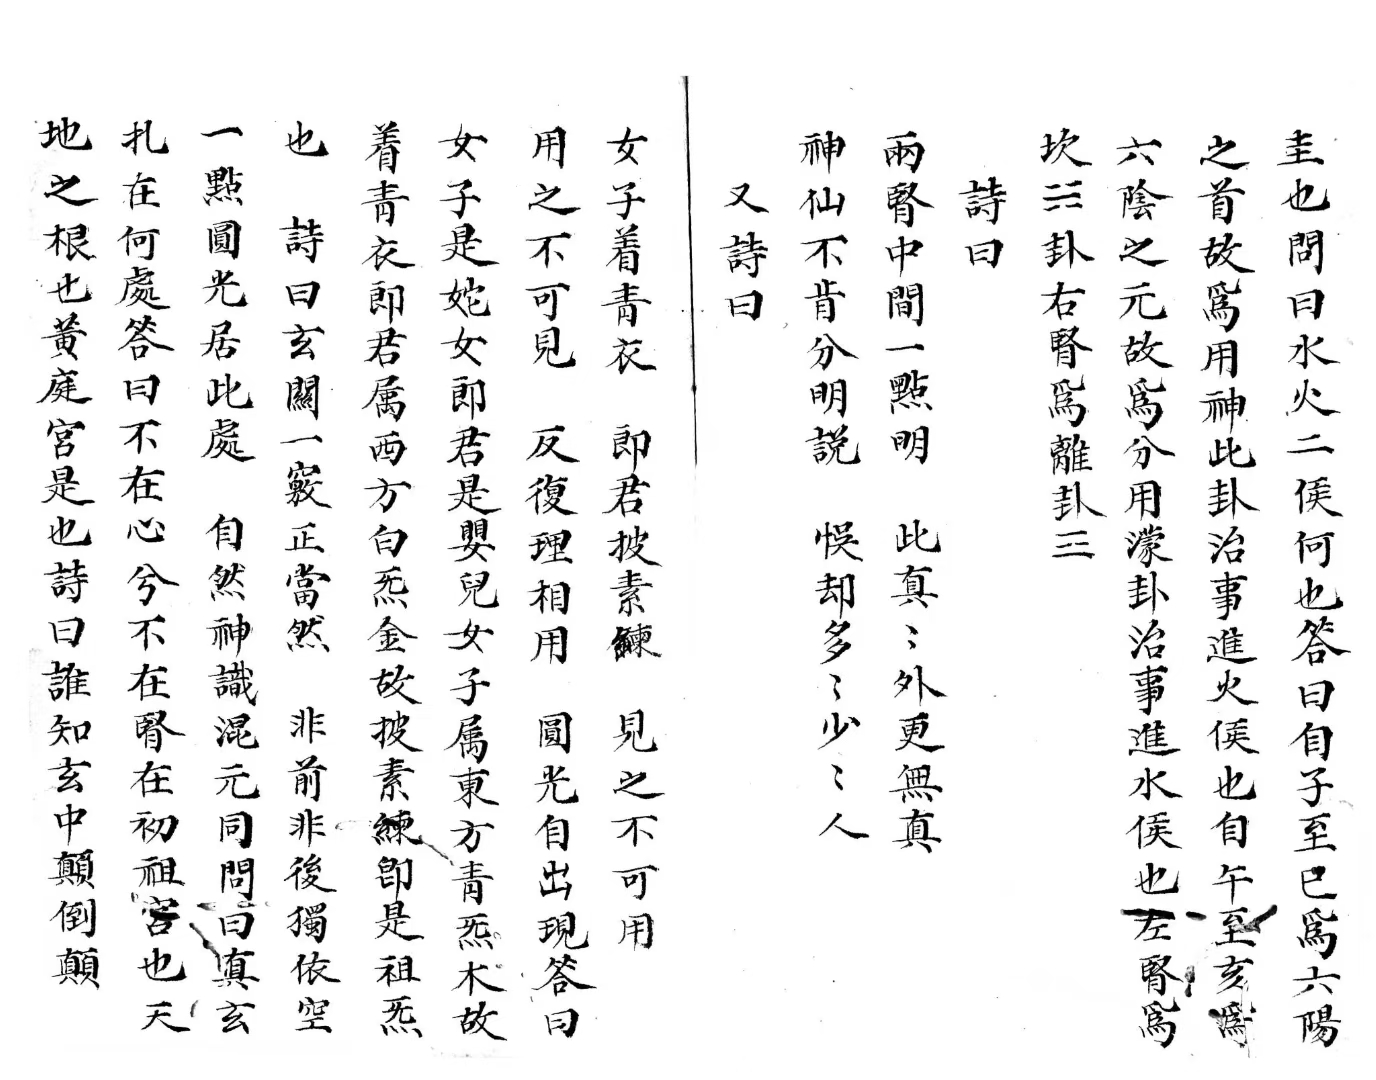 圭也問曰水火二侯何也答曰自子至巳爲六陽
之首故爲用神此卦治事進火侯也自午至亥爲
六陰之元故爲分用濛卦治事進水侯也左腎爲
坎☵卦右腎爲離卦☲
詩曰
兩腎中間一點明　此真〻外更無真
神仙不肯分明説　悮却多〻少〻人
又詩曰
女子着青衣　郎君披素練　見之不可用
用之不可見　反復理相用　圓光自出現答曰
女子是姹女郎君是嬰兒女子属東方青炁木故
着青衣郎君属西方白炁金故披素練卽是祖炁
也　詩曰玄關一竅正當然　非前非後獨依空
一點圓光居此處　自然神識混元同問曰真玄
扎在何處答曰不在心兮不在腎在初祖宮也天
地之根也黃庭宮是也詩曰誰知玄中顛倒顛